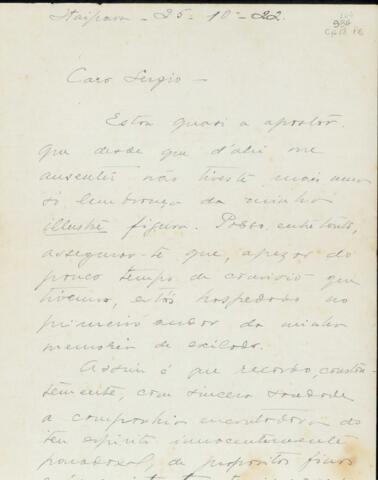 Itaipava - 25-10-22.
Caro Sergio -
Estou quasi a apostar
que desde que d'ahi me
ausentei não tiveste mais uma
só lembrança da minha
illustre figura. Posso, entretanto,
assegurar-te que, apezar do
pouco tempo de convivio que
tivemos, estás hospedado no
primeiro andar da minha
memoria de exilado.
Assim é que recordo, constan-
temente, com sincera saudade
a companhia encantadora do
teu espirito innocentemente
paradoxal, de propositos finos